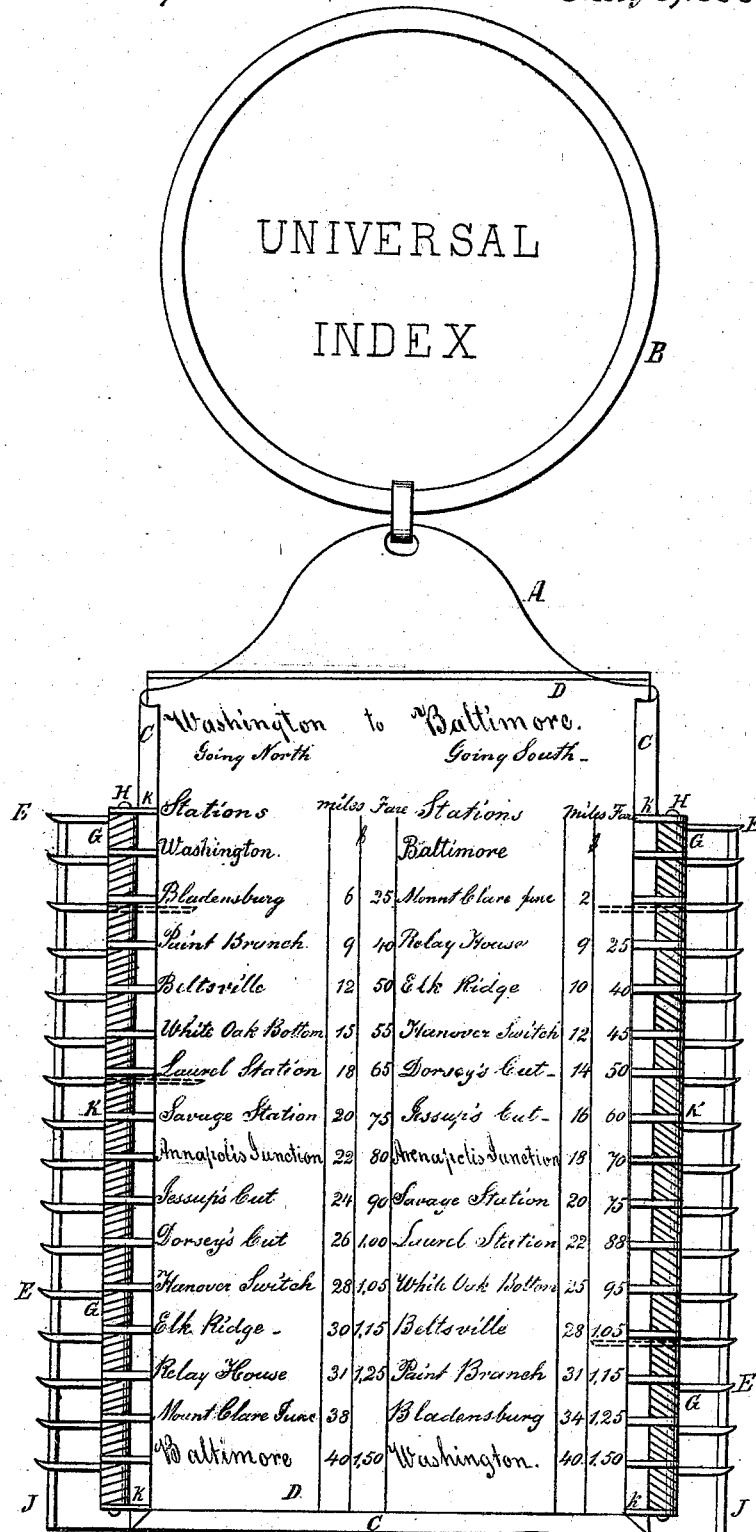 UNIVERSAL
INDEX
B
A
D
C Washington to Baltimore. C
Going North Going South-
H K Stations miles Fare Stations Miles Fare K H
E G $ $ G E
Washington. Baltimore
Bladensburg 6 25 Mount Clare June 2
Paint Branch. 9 40 Relay House 9 25
Beltsville 12 50 Elk Ridge 10 40
White Oak Bottom 15 55 Hanover Switch 12 45
Laurel Station 18 65 Dorsey's Cut- 14 50
K Savage Station 20 75 Jessup's Cut- 16 60 K
Annapolis Junction 22 80 Annapolis Junction 18 70
Jessup's Cut 24 90 Savage Station 20 75
Dorsey's Cut 26 1,00 Laurel Station 22 88
E G Hanover Switch 28 1,05 White Oak Bottom 25 95
Elk Ridge - 30 1,15 Beltsville 28 1,05
Relay House 31 1,25 Paint Branch 31 1,15 E
Mount Clare June 38 Bladensburg 34 1,25 G
Baltimore 40 1,50 Washington. 40 1,50
J K D. K J
C